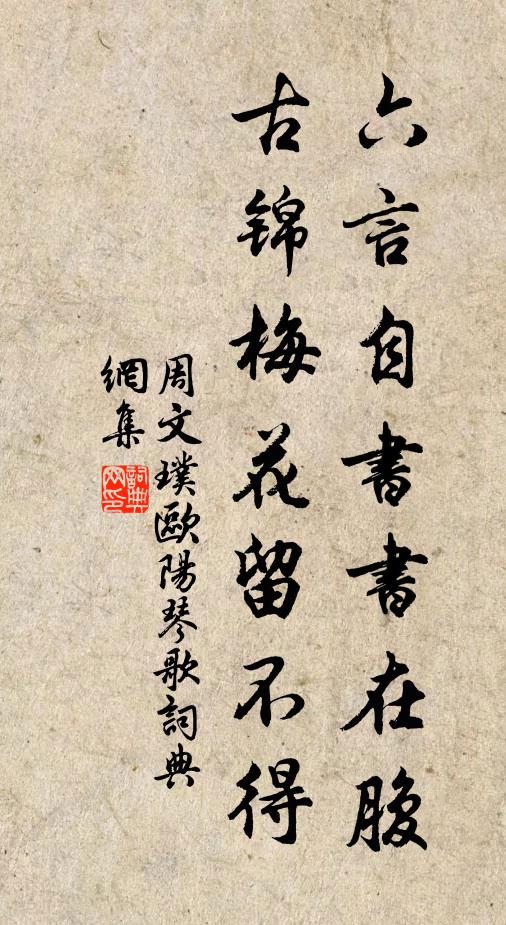 六言自書書在腹
古锦梅花留不得
周文璞歐陽琴歌詞典
網集
詞典網印